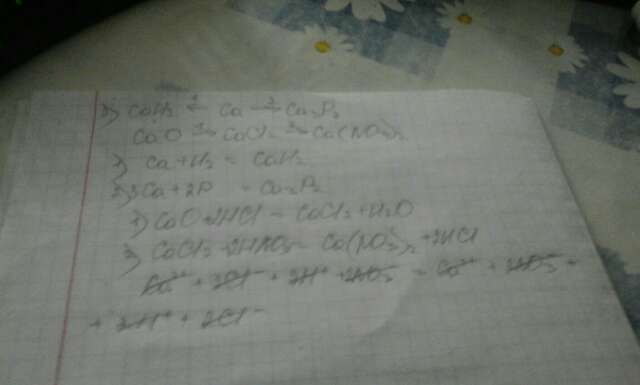 CaH₂ ←¹ Ca →² Ca₃P₂
CaO →¹ CaCl₂ →² Ca(NO₃)₂
1) Ca + H₂ = CaH₂
2) 3Ca + 2P = Ca₃P₂
1) CaO + 2HCl = CaCl₂ + H₂O
2) CaCl₂ + 2HNO₃ = Ca(NO₃)₂ + 2HCl
Ca²⁺ + 2Cl⁻ + 2H⁺ + 2NO₃⁻ = Ca²⁺ + 2NO₃⁻ +
+ 2H⁺ + 2Cl⁻